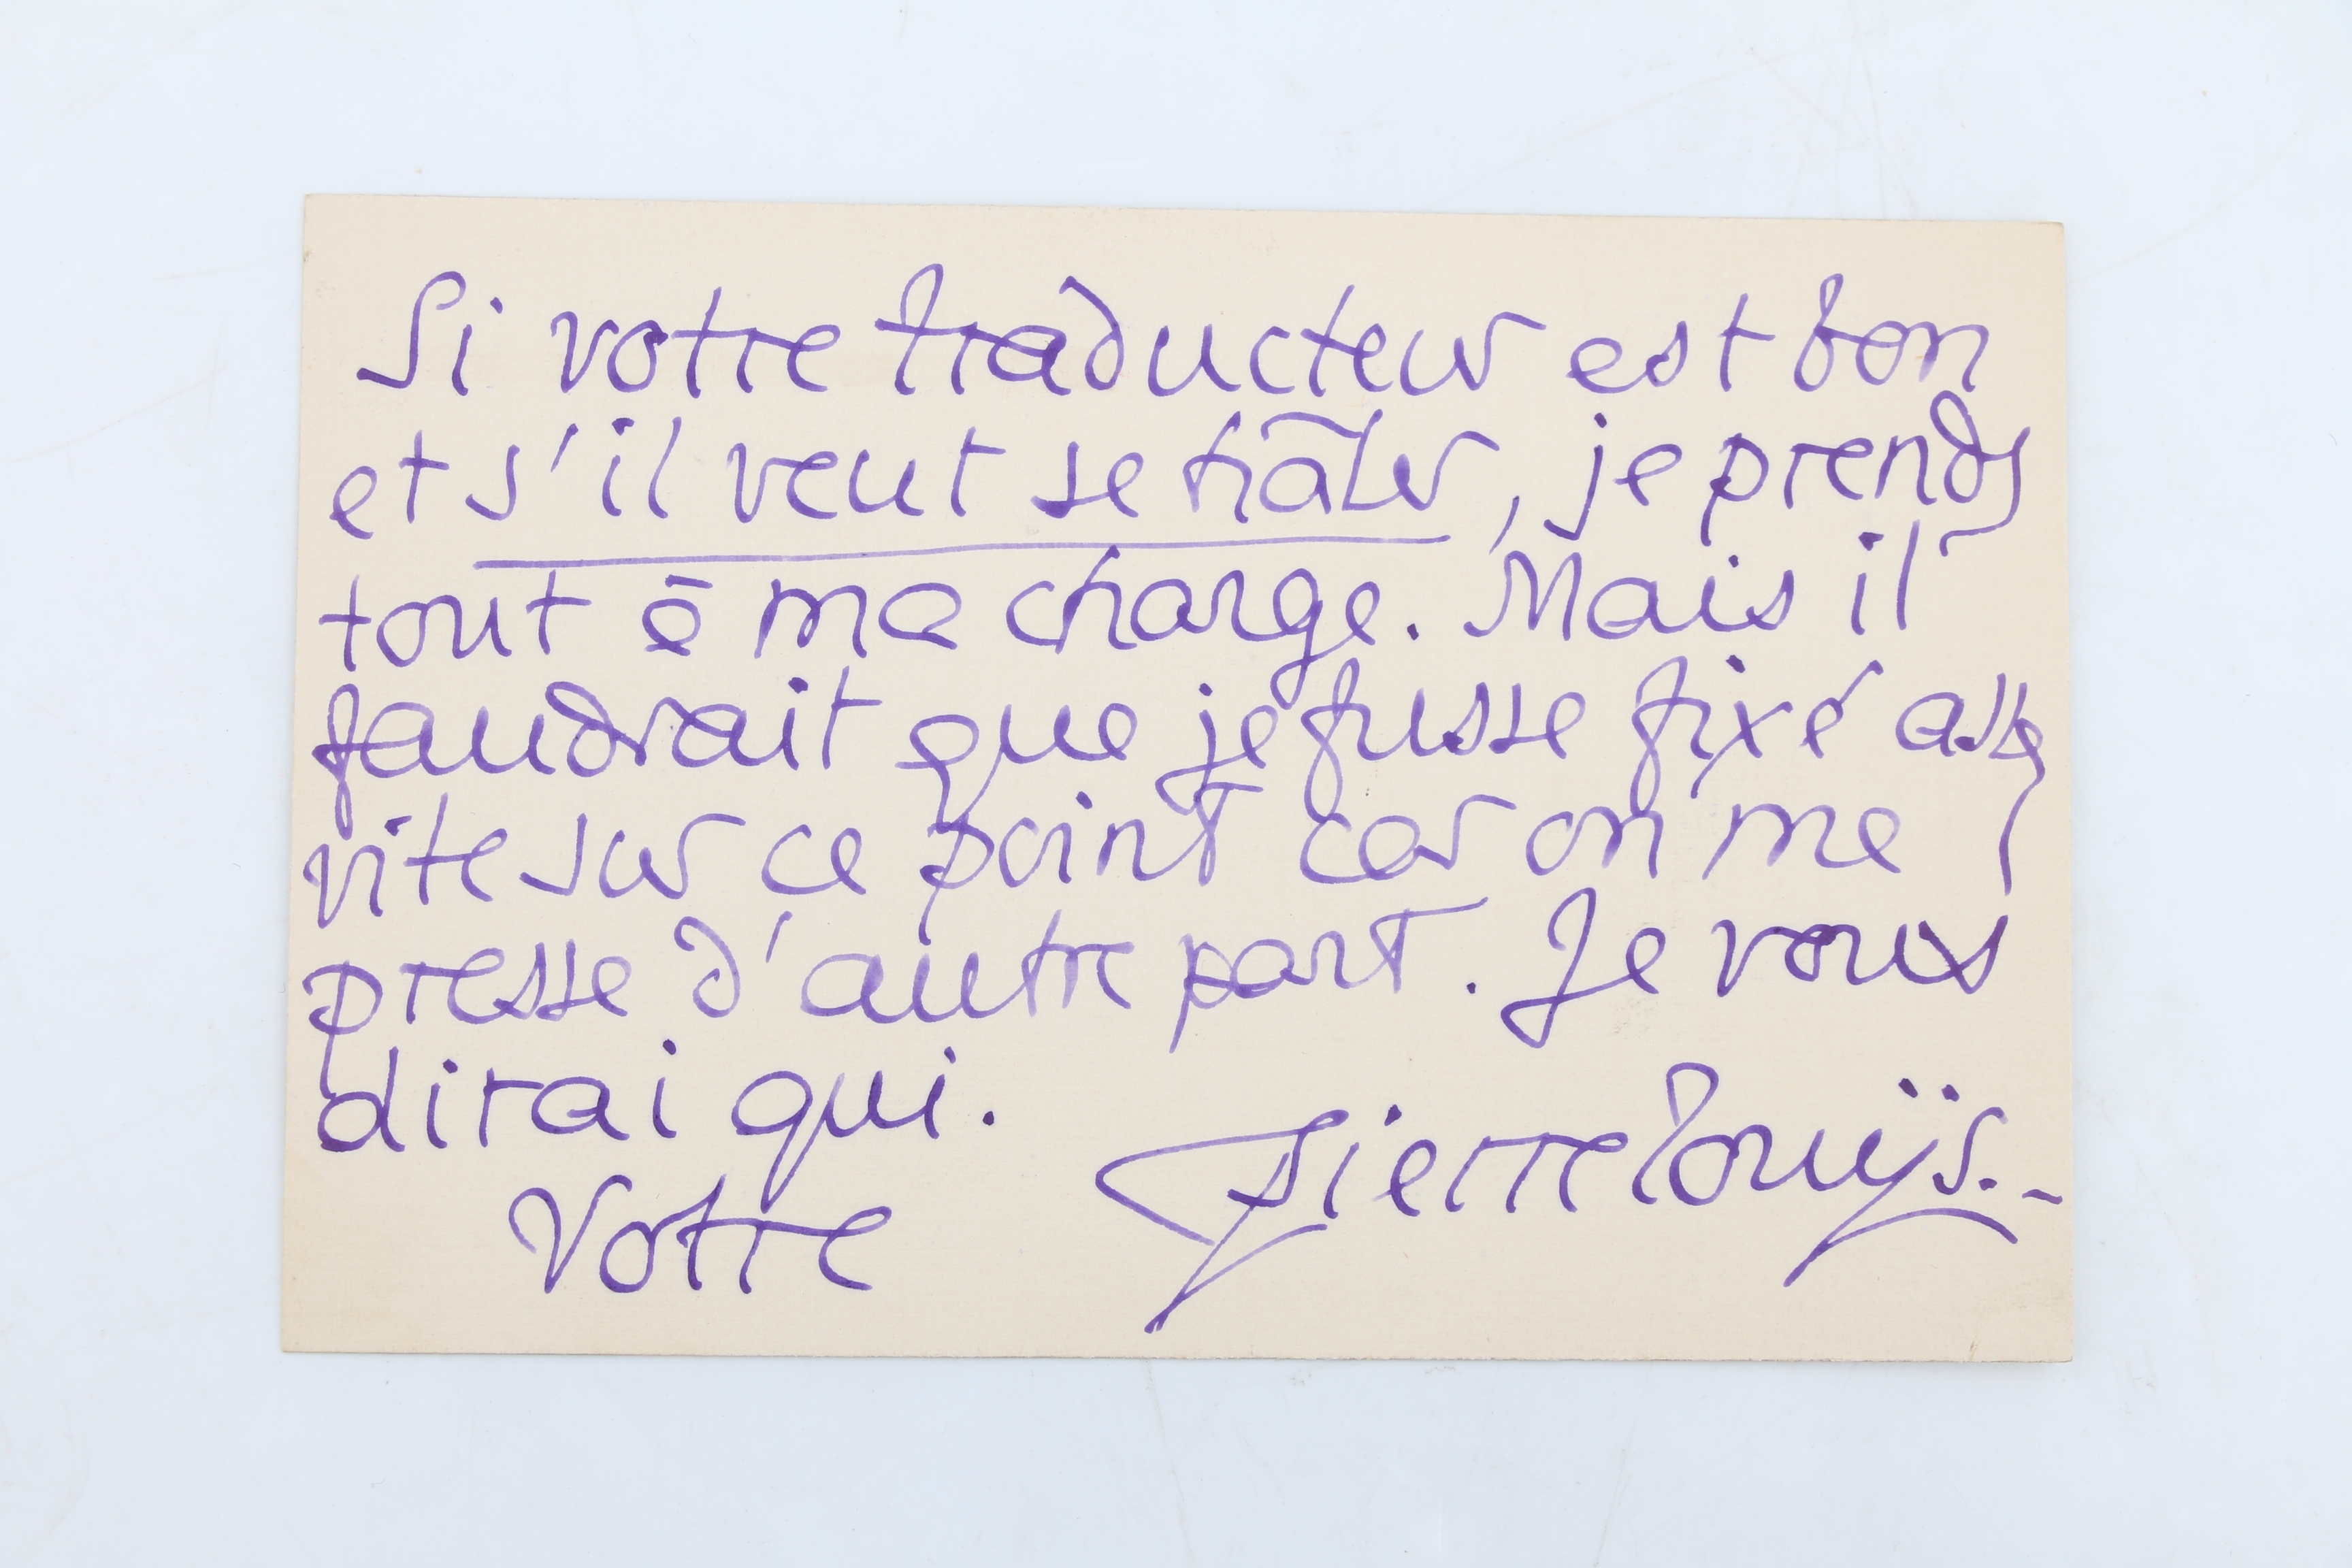 Si votre traducteur est bon
et s'il veut se hâter, je prends
tout à ma charge. Mais il
faudrait que je fusse fixé assez
vite sur ce point car on me
presse d'autre part. Je vous
dirai qui.
Votre Pierre Louÿs.-